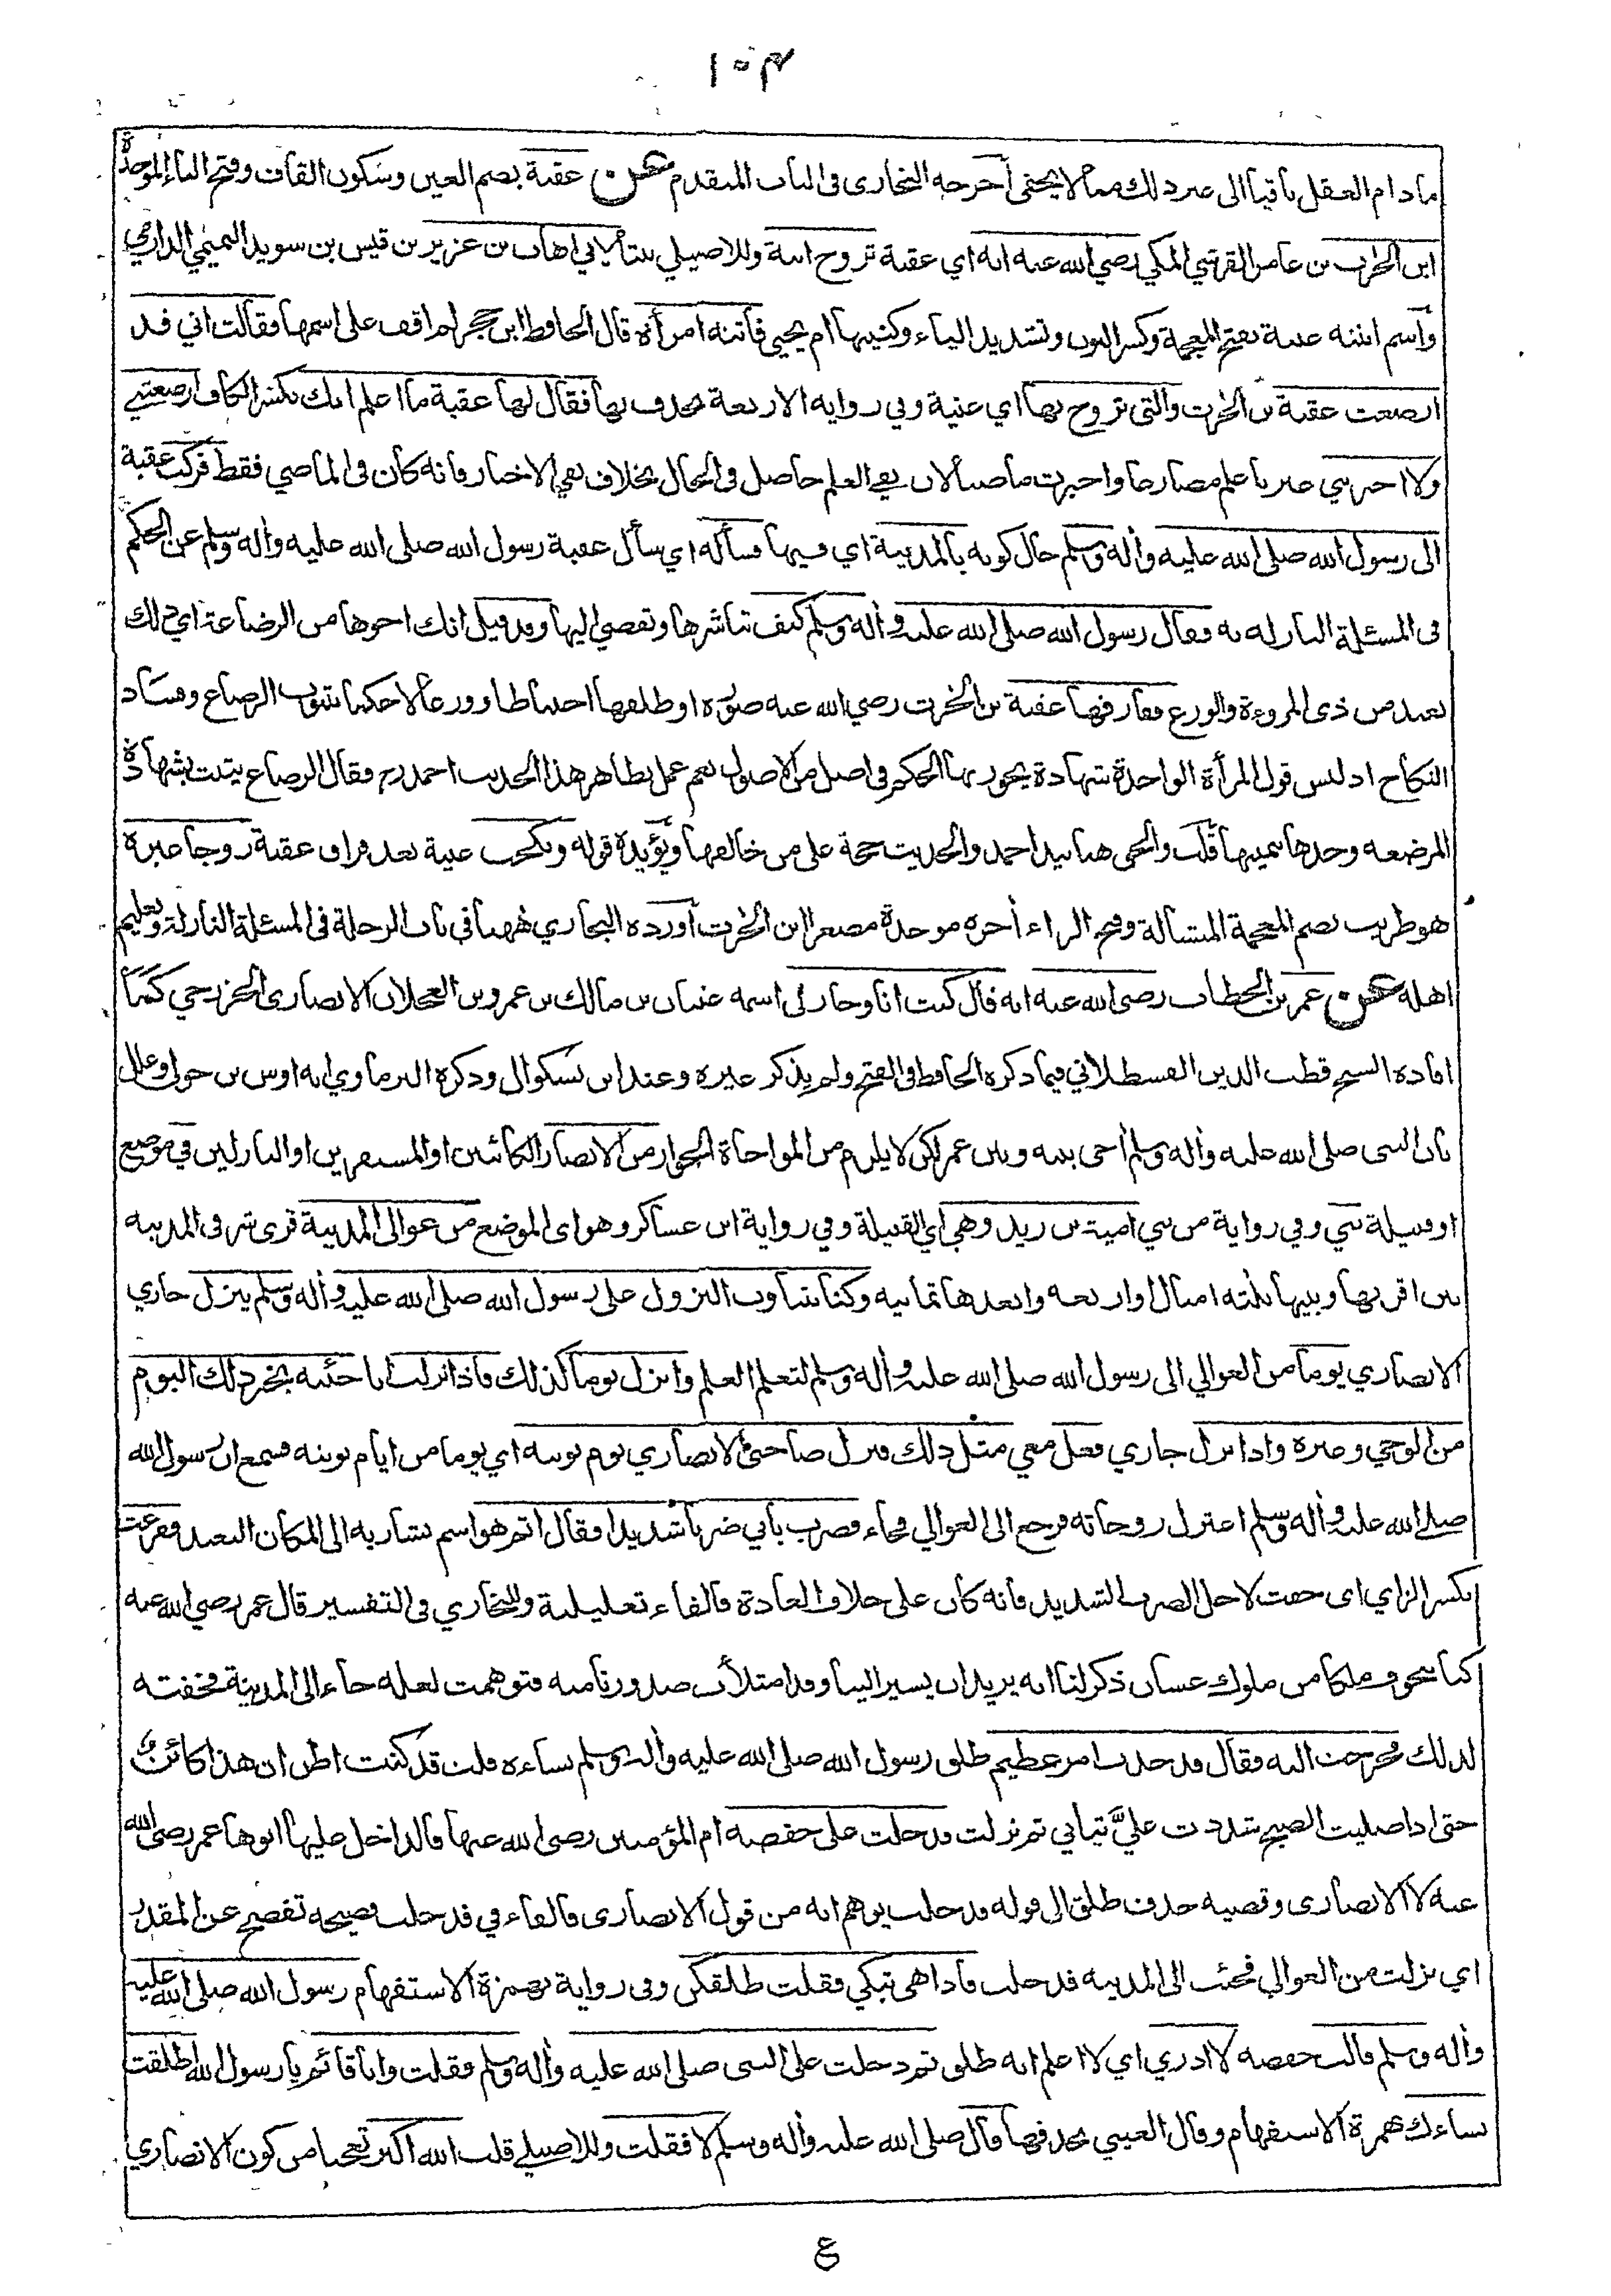 ١٥٣
ما دام العقل باقيا الى غير ذلك مما لا يخفى أخرجه البخارى فى الباب المتقدم عن عقبة بضم العين وسكون القاف وفتح الباء الموحدة
ابن الحرث بن عامر القرشي المكي رضي الله عنه انه اي عقبة تزوج ابنة وللاصيلي بنتا لابي اهاب بن عزيز بن قيس بن سويد التميمي الدارمي
واسم ابنته غنية بفتح المعجمة وكسر النون وتشديد الياء وكنيتها ام يحيى فأتته امرأة قال الحافظ ابن حجر لم اقف على اسمها فقالت اني قد
ارضعت عقبة بن الحرث والتى تزوج بها اي غنية وفي رواية الاربعة بحذف بها فقال لها عقبة ما اعلم انك بكسر الكاف ارضعتني
ولا اخبرتني عبر باعلم مضارعا واخبرت ماضيا لان نفي العلم حاصل فى الحال بخلاف نفي الاخبار فانه كان فى الماضي فقط فركب عقبة
الى رسول الله صلى الله عليه وأله وسلم حال كونه بالمدينة اي فيها فسأله اي سأل عقبة رسول الله صلى الله عليه وأله وسلم عن الحكم
فى المسئلة النازلة به فقال رسول الله صلى الله عليه وأله وسلم كيف تباشرها وتفضي اليها وقد قيل انك اخوها من الرضاعة اي ذلك
بعيد من ذى المروءة والورع ففارقها عقبة بن الحرث رضي الله عنه صورة او طلقها احتياطا وورعا لا حكما بثبوت الرضاع وفساد
النكاح اذ ليس قول المرأة الواحدة شهادة يجوز بها الحكم فى اصل من الاصول نعم عمل بظاهر هذا الحديث احمد رح فقال الرضاع يثبت بشهادة
المرضعة وحدها بيمينها قلت والحق هنا بيد احمد والحديث حجة على من خالفها ويؤيدة قوله ونكحت غنية بعد فراق عقبة زوجا غيرة
هو ظريب بضم المعجمة المشالة وفتح الراء أخره موحدة مصغرا ابن الحرث أورده البخاري ههنا في باب الرحلة فى المسئلة النازلة وتعليم
اهله عن عمر بن الخطاب رضى الله عنه انه قال كنت انا وجار لى اسمه عتبان بن مالك بن عمرو بن العجلان الانصارى الخزرجي كما
افاده الشيخ قطب الدين القسطلاني فيما ذكره الحافظ فى الفتح ولم يذكر غيره وعند ابن بشكوال وذكره البرماوي انه اوس بن خولى وعلل
بان النبى صلى الله عليه وأله وسلم أخى بينه وبين عمر لكن لا يلزم من المواخاة الجوار من الانصار الكائنين او المستقرين او النازلين في موضع
او قبيلة بني وفي رواية من بني امية بن زيد وهي اي القبيلة وفي رواية ابن عساكر وهو اى الموضع من عوالى المدينة قرى شرقى المدينة
بين اقربها وبينها ثلثة اميال او اربعة وابعدها ثمانية وكنا نتناوب النزول على رسول الله صلى الله عليه وأله وسلم ينزل جاري
الانصاري يوما من العوالي الى رسول الله صلى الله عليه وأله وسلم لتعلم العلم وانزل يوما كذلك فاذا نزلت انا جئته بخبر ذلك اليوم
من الوحي وغيره واذا نزل جاري فعل معي مثل ذلك فنزل صاحبى الانصاري يوم نوبته اي يوما من ايام نوبته فسمع ان رسول الله
صلى الله عليه وأله وسلم اعتزل زوجاته فرجع الى العوالي فجاء فضرب بابي ضربا شديدا فقال اثم هو اسم يشار به الى المكان البعيد ففزعت
بكسر الزاي اى خفت لاجل الضرب الشديد فانه كان على خلاف العادة فالفاء تعليلية وللبخاري فى التفسير قال عمر رضي الله عنه
كنا نتخوف ملكا من ملوك غسان ذكر لنا انه يريد ان يسير الينا وقد امتلأت صدورنا منه فتوهمت لعله جاء الى المدينة فخفته
لذلك فخرجت اليه فقال قد حدث امر عظيم طلق رسول الله صلى الله عليه وأله وسلم نساءه قلت قد كنت اظن ان هذا كائن
حتى اذا صليت الصبح شددت عليَّ ثيابي ثم نزلت فدخلت على حفصة ام المؤمنين رضى الله عنها فالداخل عليها ابوها عمر رضى الله
عنه لا الانصارى وقضية حذف طلق الى قوله فدخلت يوهم انه من قول الانصارى فالفاء في فدخلت فصيحة تفصح عن المقدر
اي نزلت من العوالي فجئت الى المدينة فدخلت فاذا هى تبكي فقلت طلقكن وفى رواية بهمزة الاستفهام رسول الله صلى الله عليه
وأله وسلم قالت حفصة لا ادري اي لا اعلم انه طلق ثم دخلت على النبى صلى الله عليه وأله وسلم فقلت وانا قائم يا رسول الله اطلقت
نساءك بهمزة الاستفهام وقال العيني بحذفها قال صلى الله عليه وأله وسلم لا فقلت وللاصيلي قلت الله اكبر تعجبا من كون الانصاري
ع